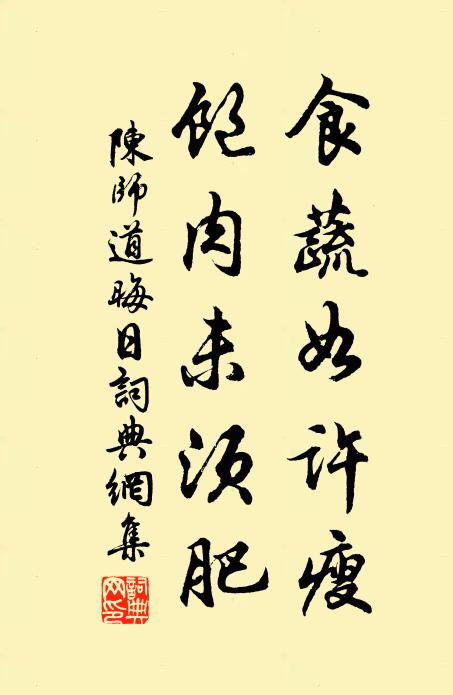 食蔬如許瘦
飽肉未須肥
陳師道晦日詞典網集